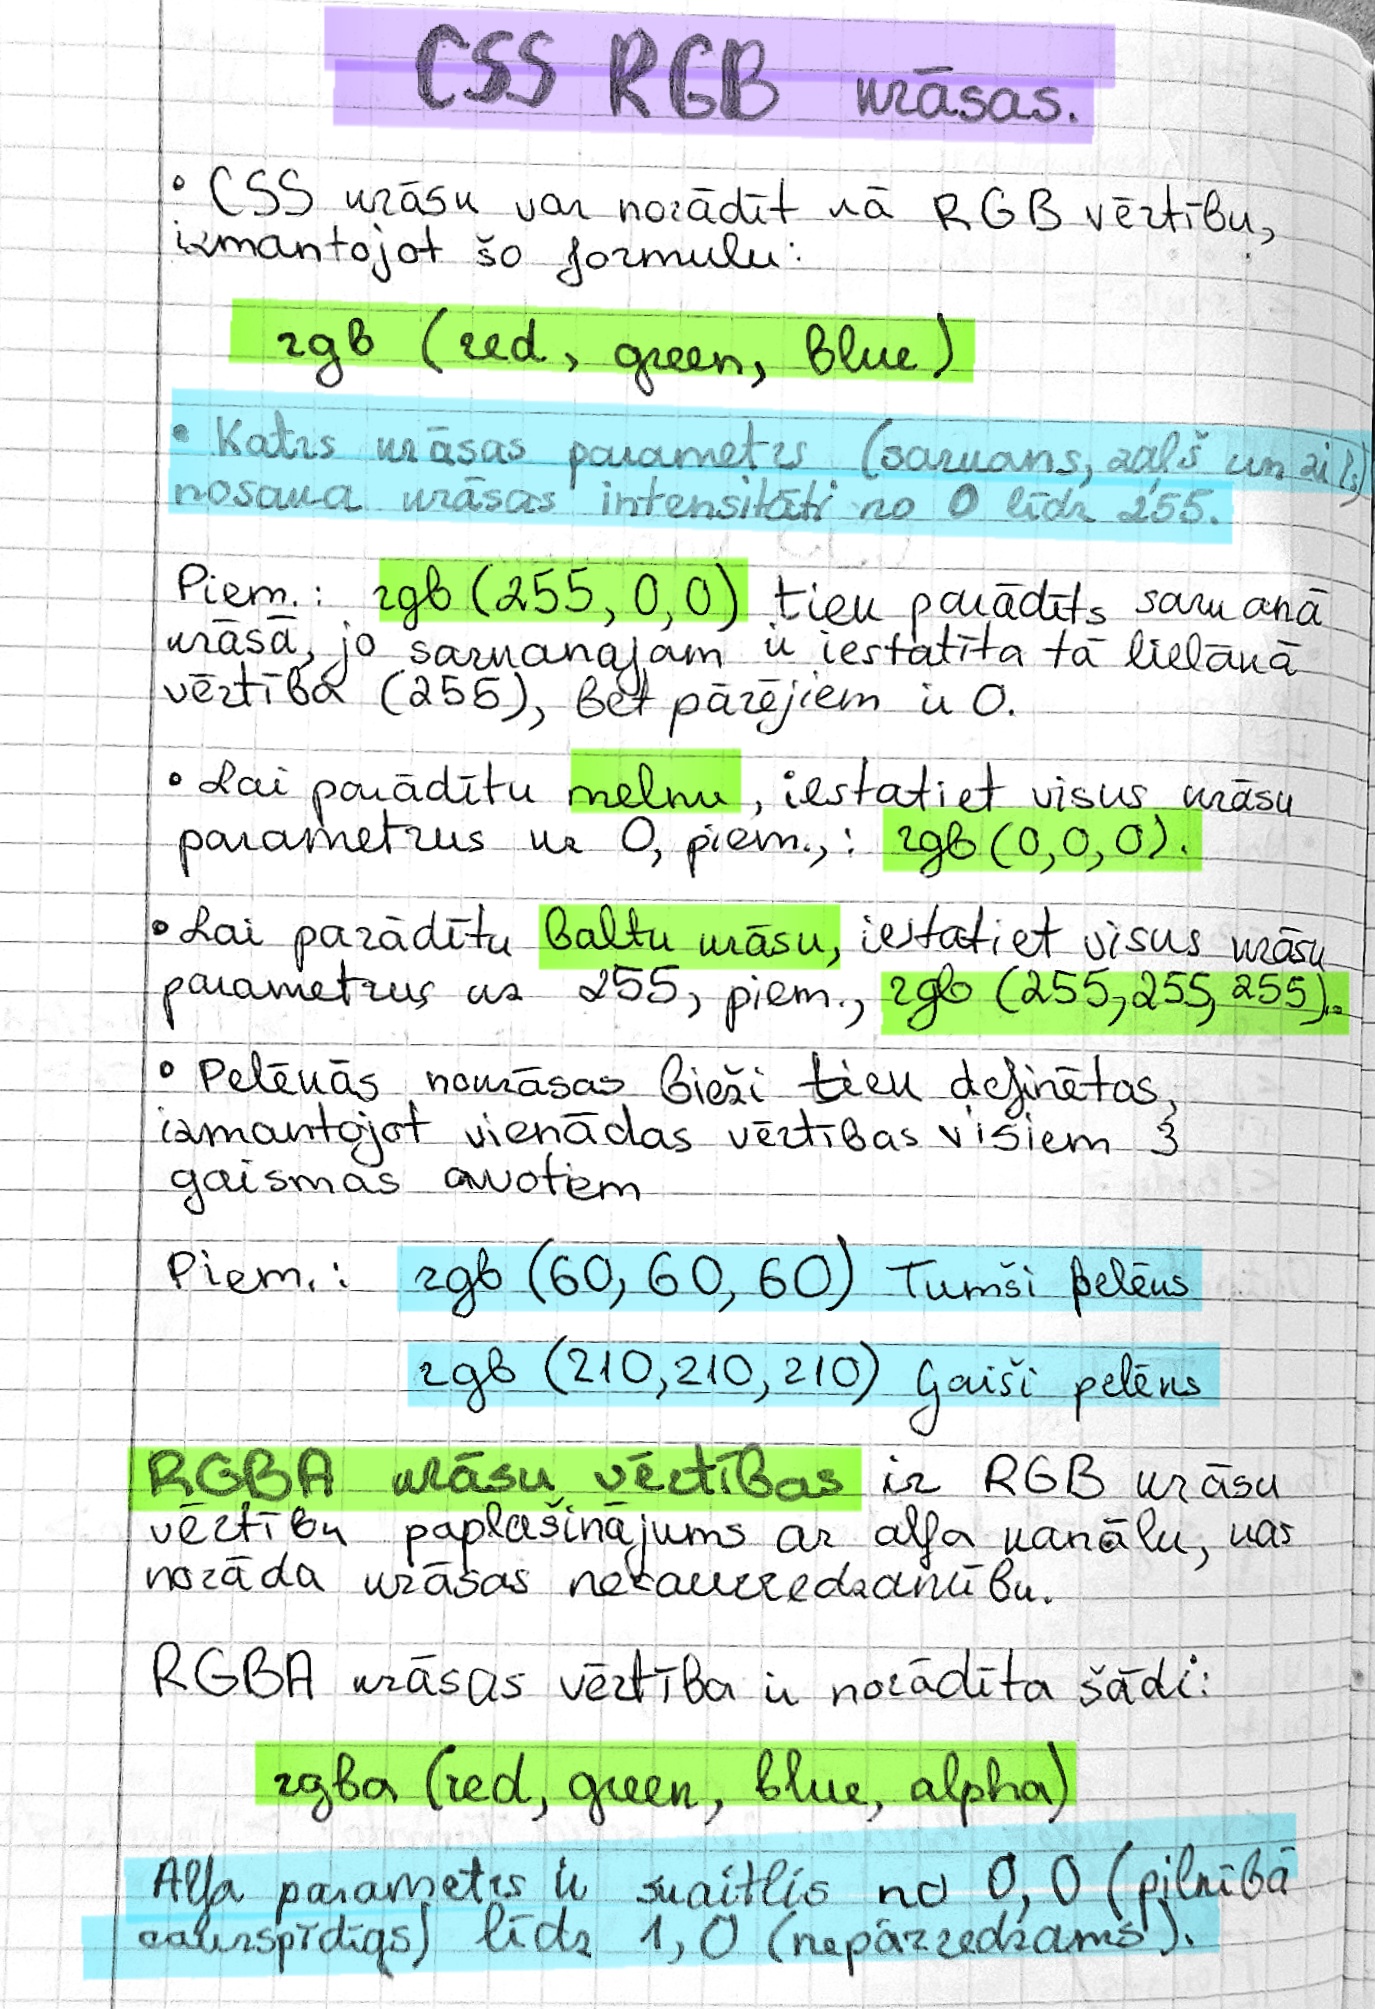 CSS RGB krāsas.
• CSS krāsu var norādīt kā RGB vērtību,
izmantojot šo formulu:
rgb (red, green, blue)
• Katrs krāsas parametrs (sarkans, zaļš un zils)
nosaka krāsas intensitāti no 0 līdz 255.
Piem.: rgb (255, 0, 0) tiek parādīts sarkanā
krāsā, jo sarkanajam ir iestatīta tā lielākā
vērtība (255), bet pārējiem ir 0.
• Lai parādītu melnu, iestatiet visus krāsu
parametrus uz 0, piem.,: rgb (0,0,0).
• Lai parādītu baltu krāsu, iestatiet visus krāsu
parametrus uz 255, piem., rgb (255,255,255).
• Pelēkās nokrāsas bieži tiek definētas,
izmantojot vienādas vērtības visiem 3
gaismas avotiem
Piem.: rgb (60, 60, 60) Tumši pelēks
rgb (210,210,210) Gaiši pelēks
RGBA krāsu vērtības ir RGB krāsu
vērtību paplašinājums ar alfa kanālu, kas
norāda krāsas necaurredzamību.
RGBA krāsas vērtība ir norādīta šādi:
rgba (red, green, blue, alpha)
Alfa parametrs ir skaitlis no 0,0 (pilnībā
caurspīdīgs) līdz 1,0 (nepārredzams).